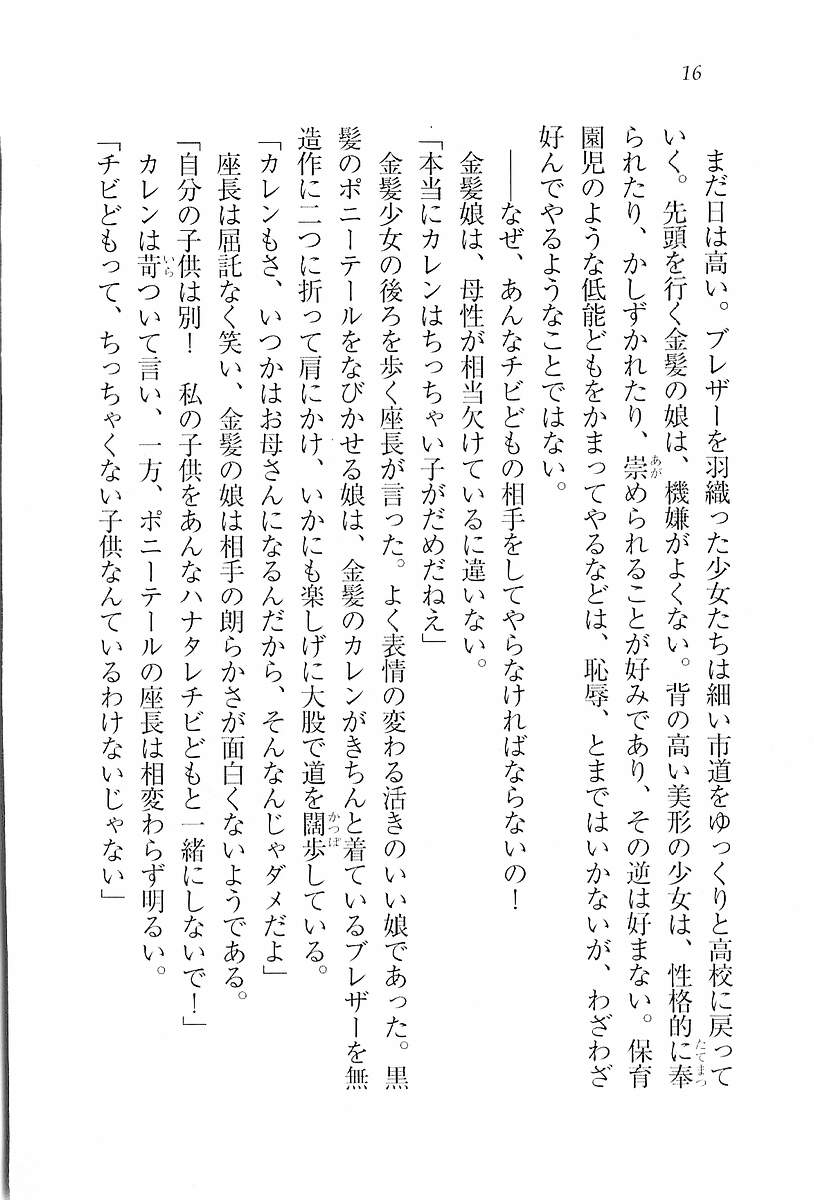 16
まだ日は高い。ブレザーを羽織った少女たちは細い市道をゆっくりと高校に戻って
いく。先頭を行く金髪の娘は、機嫌がよくない。背の高い美形の少女は、性格的に奉
られたり、かしずかれたり、崇められることが好みであり、その逆は好まない。保育
園児のような低能どもをかまってやるなどは、恥辱、とまではいかないが、わざわざ
好んでやるようなことではない。
――なぜ、あんなチビどもの相手をしてやらなければならないの!
金髪娘は、母性が相当欠けているに違いない。
「本当にカレンはちっちゃい子がだめだねえ」
金髪少女の後ろを歩く座長が言った。よく表情の変わる活きのいい娘であった。黒
髪のポニーテールをなびかせる娘は、金髪のカレンがきちんと着ているブレザーを無
造作に二つに折って肩にかけ、いかにも楽しげに大股で道を闊歩している。
「カレンもさ、いつかはお母さんになるんだから、そんなんじゃダメだよ」
座長は屈託なく笑い、金髪の娘は相手の朗らかさが面白くないようである。
「自分の子供は別! 私の子供をあんなハナタレチビどもと一緒にしないで!」
カレンは苛ついて言い、一方、ポニーテールの座長は相変わらず明るい。
「チビどもって、ちっちゃくない子供なんているわけないじゃない」
たてまつ
あが
かつぽ
いら